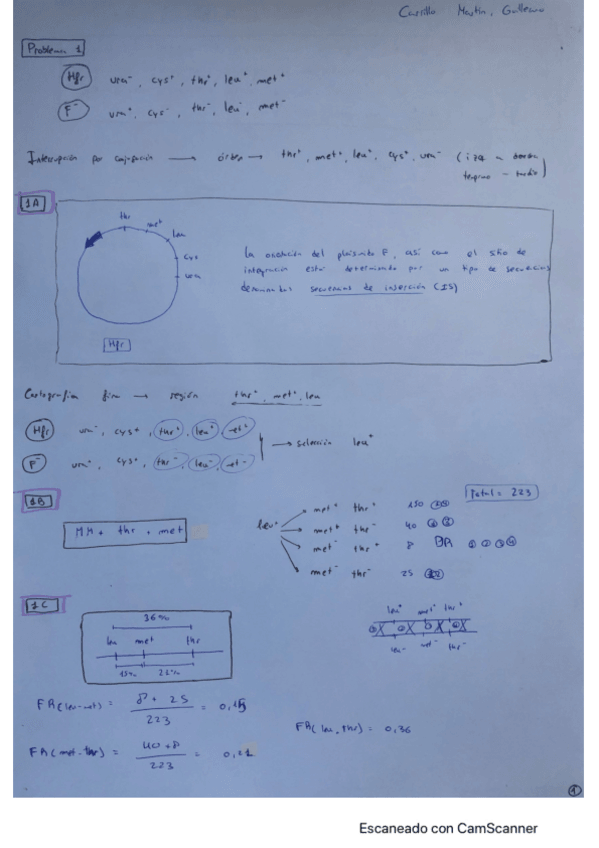 Carrillo Martín, Guillermo
Problema 1
Hfr ura⁻, cys⁺, thr⁺, leu⁺, met⁺
F⁻ ura⁺, cys⁻, thr⁻, leu⁻, met⁻
Interrupción por conjugación → orden → thr⁺, met⁺, leu⁺, cys⁺, ura⁻ (izq -
temprano - tardío)
1A
thr
met
leu
cys
ura
Hfr
La orientación del plásmido F, así como el sitio de
integración está determinado por un tipo de secuencias
denominadas secuencias de inserción (IS)
Cartografía fina → región thr⁺, met⁺, leu
Hfr ura⁻, cys⁺, thr⁺, leu⁺, met⁺
F⁻ ura⁺, cys⁺, thr⁻, leu⁻, met⁻
→ selección leu⁺
1B
Total = 223
MM + thr + met
leu⁺
met⁺ thr⁺ 150
met⁺ thr⁻ 40
met⁻ thr⁺ 8 1 2 3 4
met⁻ thr⁻ 25
1C
36%
leu met thr
15% 21%
leu⁺ met⁺ thr⁺
leu⁻ met⁻ thr⁻
FR(leu-met) = 8 + 25 / 223 = 0,15
FR(leu-thr) = 0,36
FR(met-thr) = 40 + 8 / 223 = 0,21
1
Escaneado con CamScanner